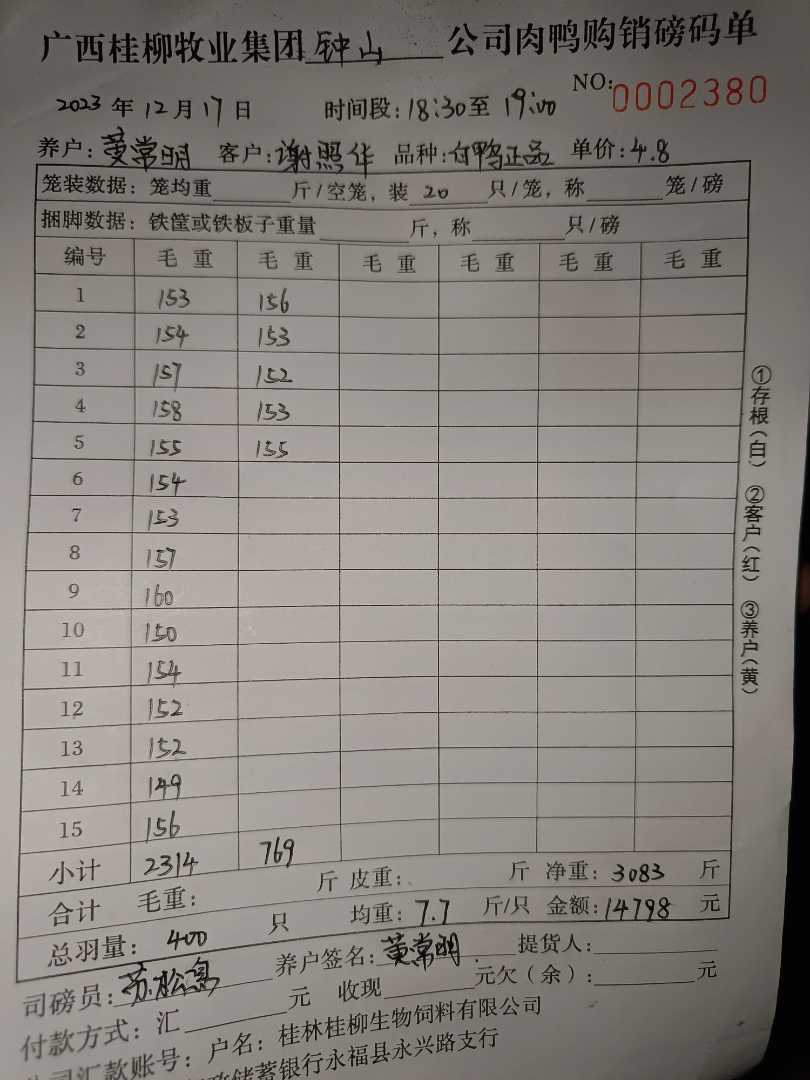 广西桂柳牧业集团钟山公司肉鸭购销磅码单
2023年12月17日 时间段:18:30至19:00 NO:0002380
养户:黄常明 客户:谢照华 品种:白鸭正品 单价:4.8
笼装数据:笼均重____斤/空笼,装20只/笼,称____笼/磅
捆脚数据:铁筐或铁板子重量____斤,称____只/磅
编号 毛重 毛重 毛重 毛重 毛重 毛重
1 153 156
2 154 153
3 157 152
4 158 153
5 155 155
6 154
7 153
8 157
9 160
10 150
11 154
12 152
13 152
14 149
15 156
小计 2314 769
合计 毛重: 斤 皮重: 斤 净重:3083 斤
总羽量:400 只 均重:7.7 斤/只 金额:14798 元
司磅员:苏松 养户签名:黄常明 提货人:
付款方式:汇____元 收现____元欠(余):____元
司汇款账号:户名:桂林桂柳生物饲料有限公司
储蓄银行永福县永兴路支行
①存根(白) ②客户(红) ③养户(黄)